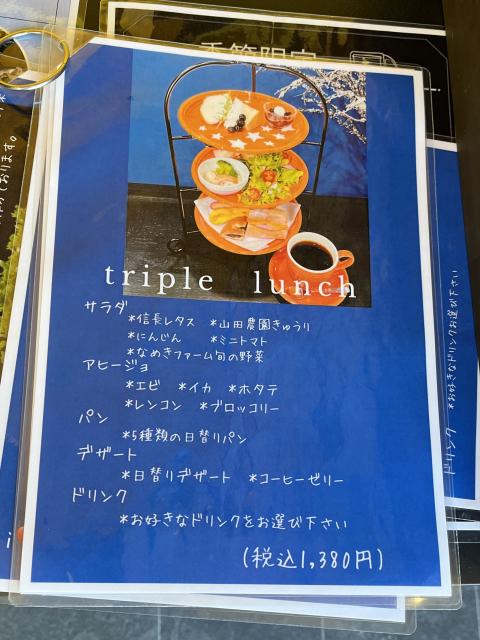 季節限定
triple lunch
サラダ
*信長レタス *山田農園きゅうり
*にんじん *ミニトマト
*なめきファーム旬の野菜
アヒージョ
*エビ *イカ *ホタテ
*レンコン *ブロッコリー
パン
*5種類の日替りパン
デザート
*日替りデザート *コーヒーゼリー
ドリンク
*お好きなドリンクをお選び下さい
(税込1,380円)
ドリンク
*お好きなドリンクお選び下さい